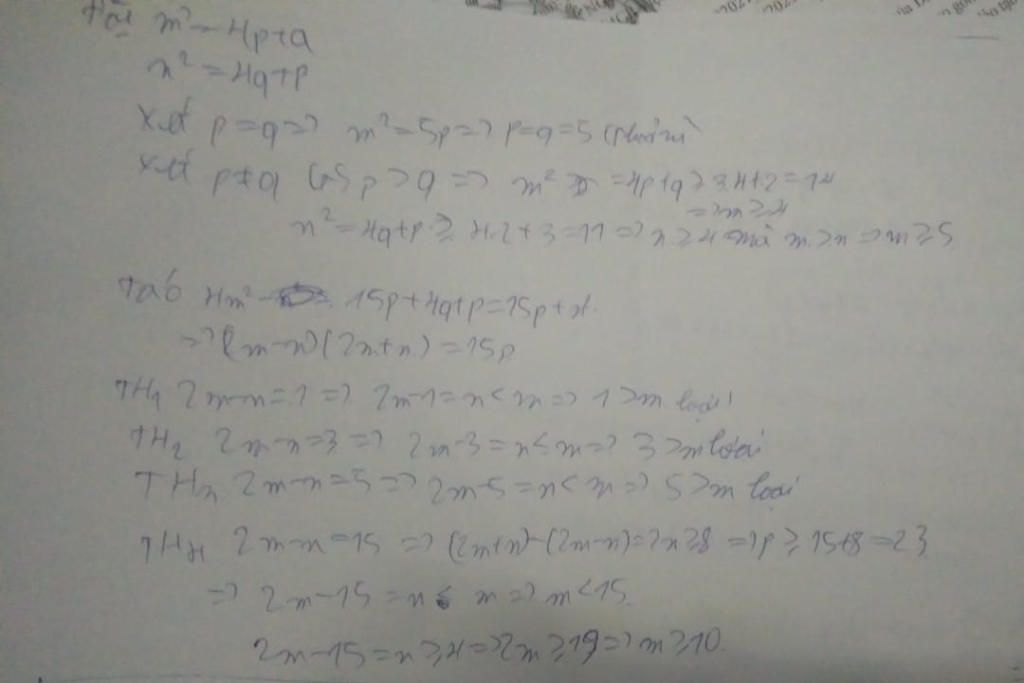 Đặt m² = 4p+q
n² = 4q+p
Xét p=q => m² = 5p => p=q=5 (thỏa mãn
Xét p≠q G/S p>q => m² = 4p+q ≥ 3.4+2 = 14
=> m ≥ 4
n² = 4q+p ≥ 4.2+3 = 11 => n ≥ 4 mà m>n => m ≥ 5
Ta có 4m² = 15p+4q+p = 15p+n²
=> (2m-n)(2m+n) = 15p
TH1 2m-n=1 => 2m-1=n<m => 1>m loại
TH2 2m-n=3 => 2m-3=n<m => 3>m loại
TH3 2m-n=5 => 2m-5=n<m => 5>m loại
TH4 2m-n=15 => (2m+n)-(2m-n)=2n≥8 => p≥15+8=23
=> 2m-15=n< m => m<15
2m-15=n≥4 => 2m≥19 => m≥10